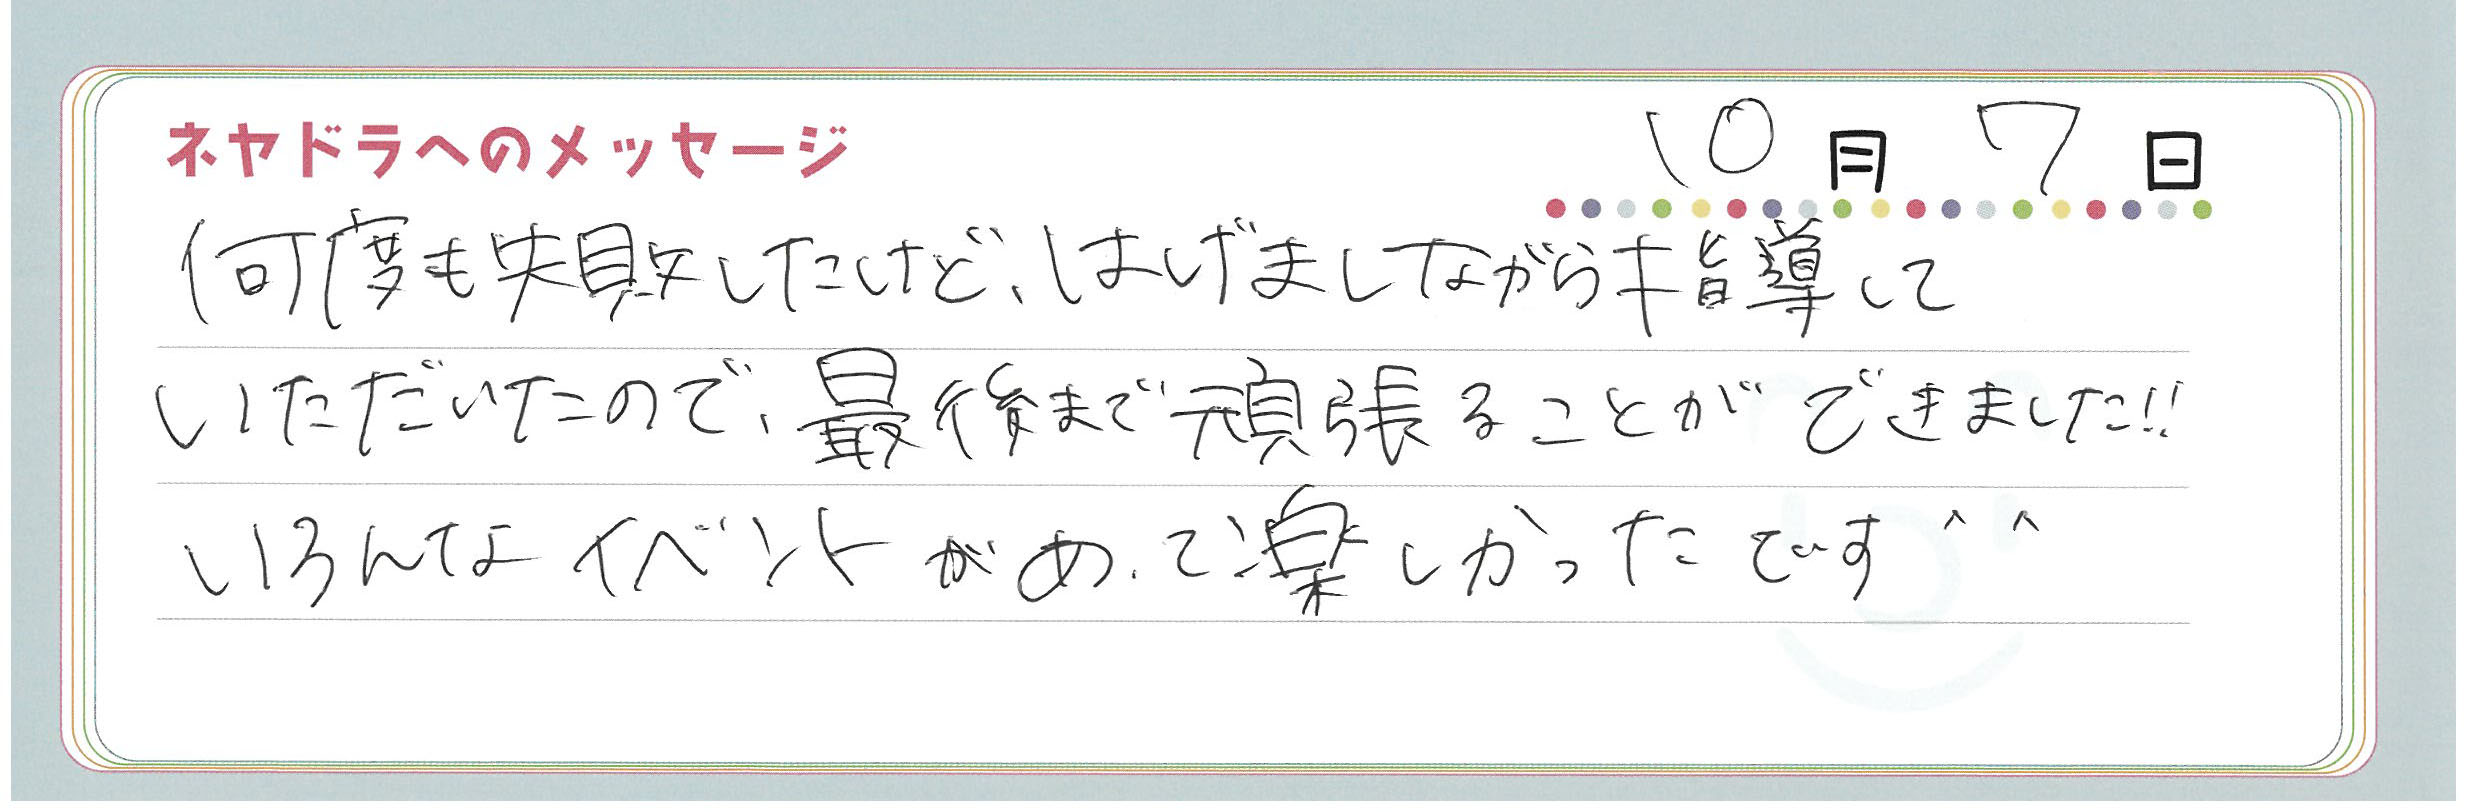 ネヤドラへのメッセージ 10月7日
何度も失敗したけど、はげましながら指導して
いただいたので、最後まで頑張ることができました!!
いろんなイベントがあって楽しかったです^^